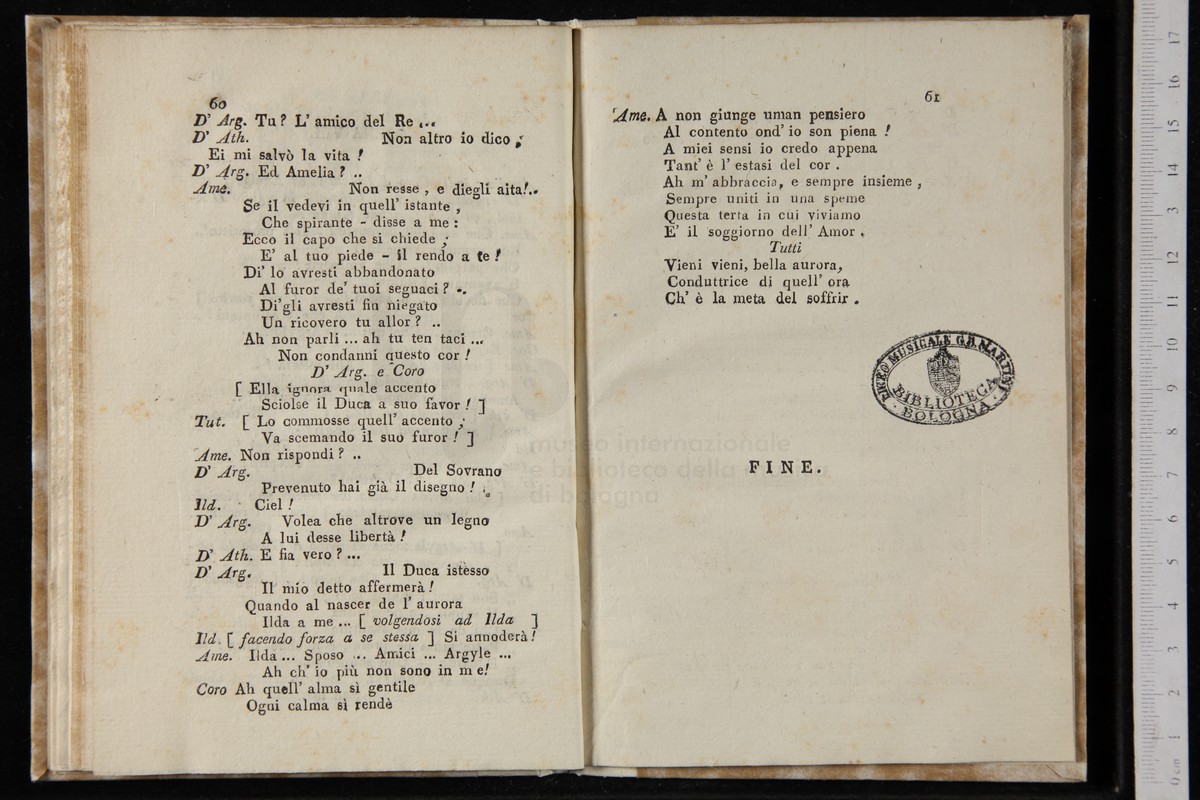 60
D' Arg. Tu ? L' amico del Re ...
D' Ath. Non altro io dico ;
Ei mi salvò la vita !
D' Arg. Ed Amelia ? ..
Ame. Non resse , e diegli aita!..
Se il vedevi in quell' istante ,
Che spirante - disse a me :
Ecco il capo che si chiede ;
E' al tuo piede - il rendo a te !
Di' lo avresti abbandonato
Al furor de' tuoi seguaci ? ..
Di' gli avresti fin niegato
Un ricovero tu allor ? ..
Ah non parli ... ah tu ten taci ...
Non condanni questo cor !
D' Arg. e Coro
[ Ella ignora quale accento
Sciolse il Duca a suo favor ! ]
Tut. [ Lo commosse quell' accento ;
Va scemando il suo furor ! ]
Ame. Non rispondi ? ..
D' Arg. Del Sovrano
Prevenuto hai già il disegno ! .
Ild. Ciel !
D' Arg. Volea che altrove un legno
A lui desse libertà !
D' Ath. E fia vero ? ...
D' Arg. Il Duca istesso
Il mio detto affermerà !
Quando al nascer de l' aurora
Ilda a me ... [ volgendosi ad Ilda ]
Ild. [ facendo forza a se stessa ] Si annoderà !
Ame. Ilda ... Sposo ... Amici ... Argyle ...
Ah ch' io più non sono in me!
Coro Ah quell' alma sì gentile
Ogni calma sì rendè
61
Ame. A non giunge uman pensiero
Al contento ond' io son piena !
A miei sensi io credo appena
Tant' è l' estasi del cor .
Ah m' abbraccia, e sempre insieme ,
Sempre uniti in una speme
Questa terra in cui viviamo
E' il soggiorno dell' Amor .
Tutti
Vieni vieni, bella aurora,
Conduttrice di quell' ora
Ch' è la meta del soffrir .
LICEO MUSICALE G.B. MARTINI
BIBLIOTECA
BOLOGNA
FINE.
museo internazionale
e biblioteca della musica
di bologna
0 cm 1 2 3 4 5 6 7 8 9 10 11 12 13 14 15 16 17